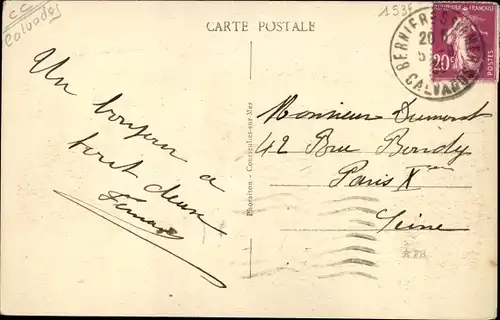 CC
Calvados
CARTE POSTALE
1535
BERNIERES S MER
20
CALVADOS
REPUBLIQUE FRANÇAISE
20c
POSTES
Un bonjour a
tout deux
Photaison - Courseulles-sur-Mer
Monsieur Dumont
42 Rue Bondy
Paris Xme
Seine